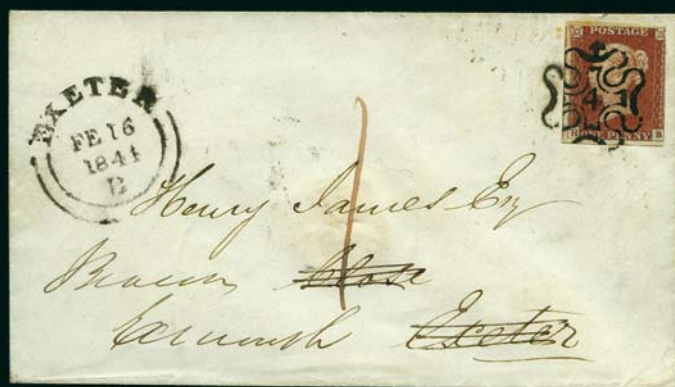 POSTAGE
4
H ONE PENNY B
EXETER
FE 16
1844
Henry James Esq
Beacon Close
Exmouth Exeter
1